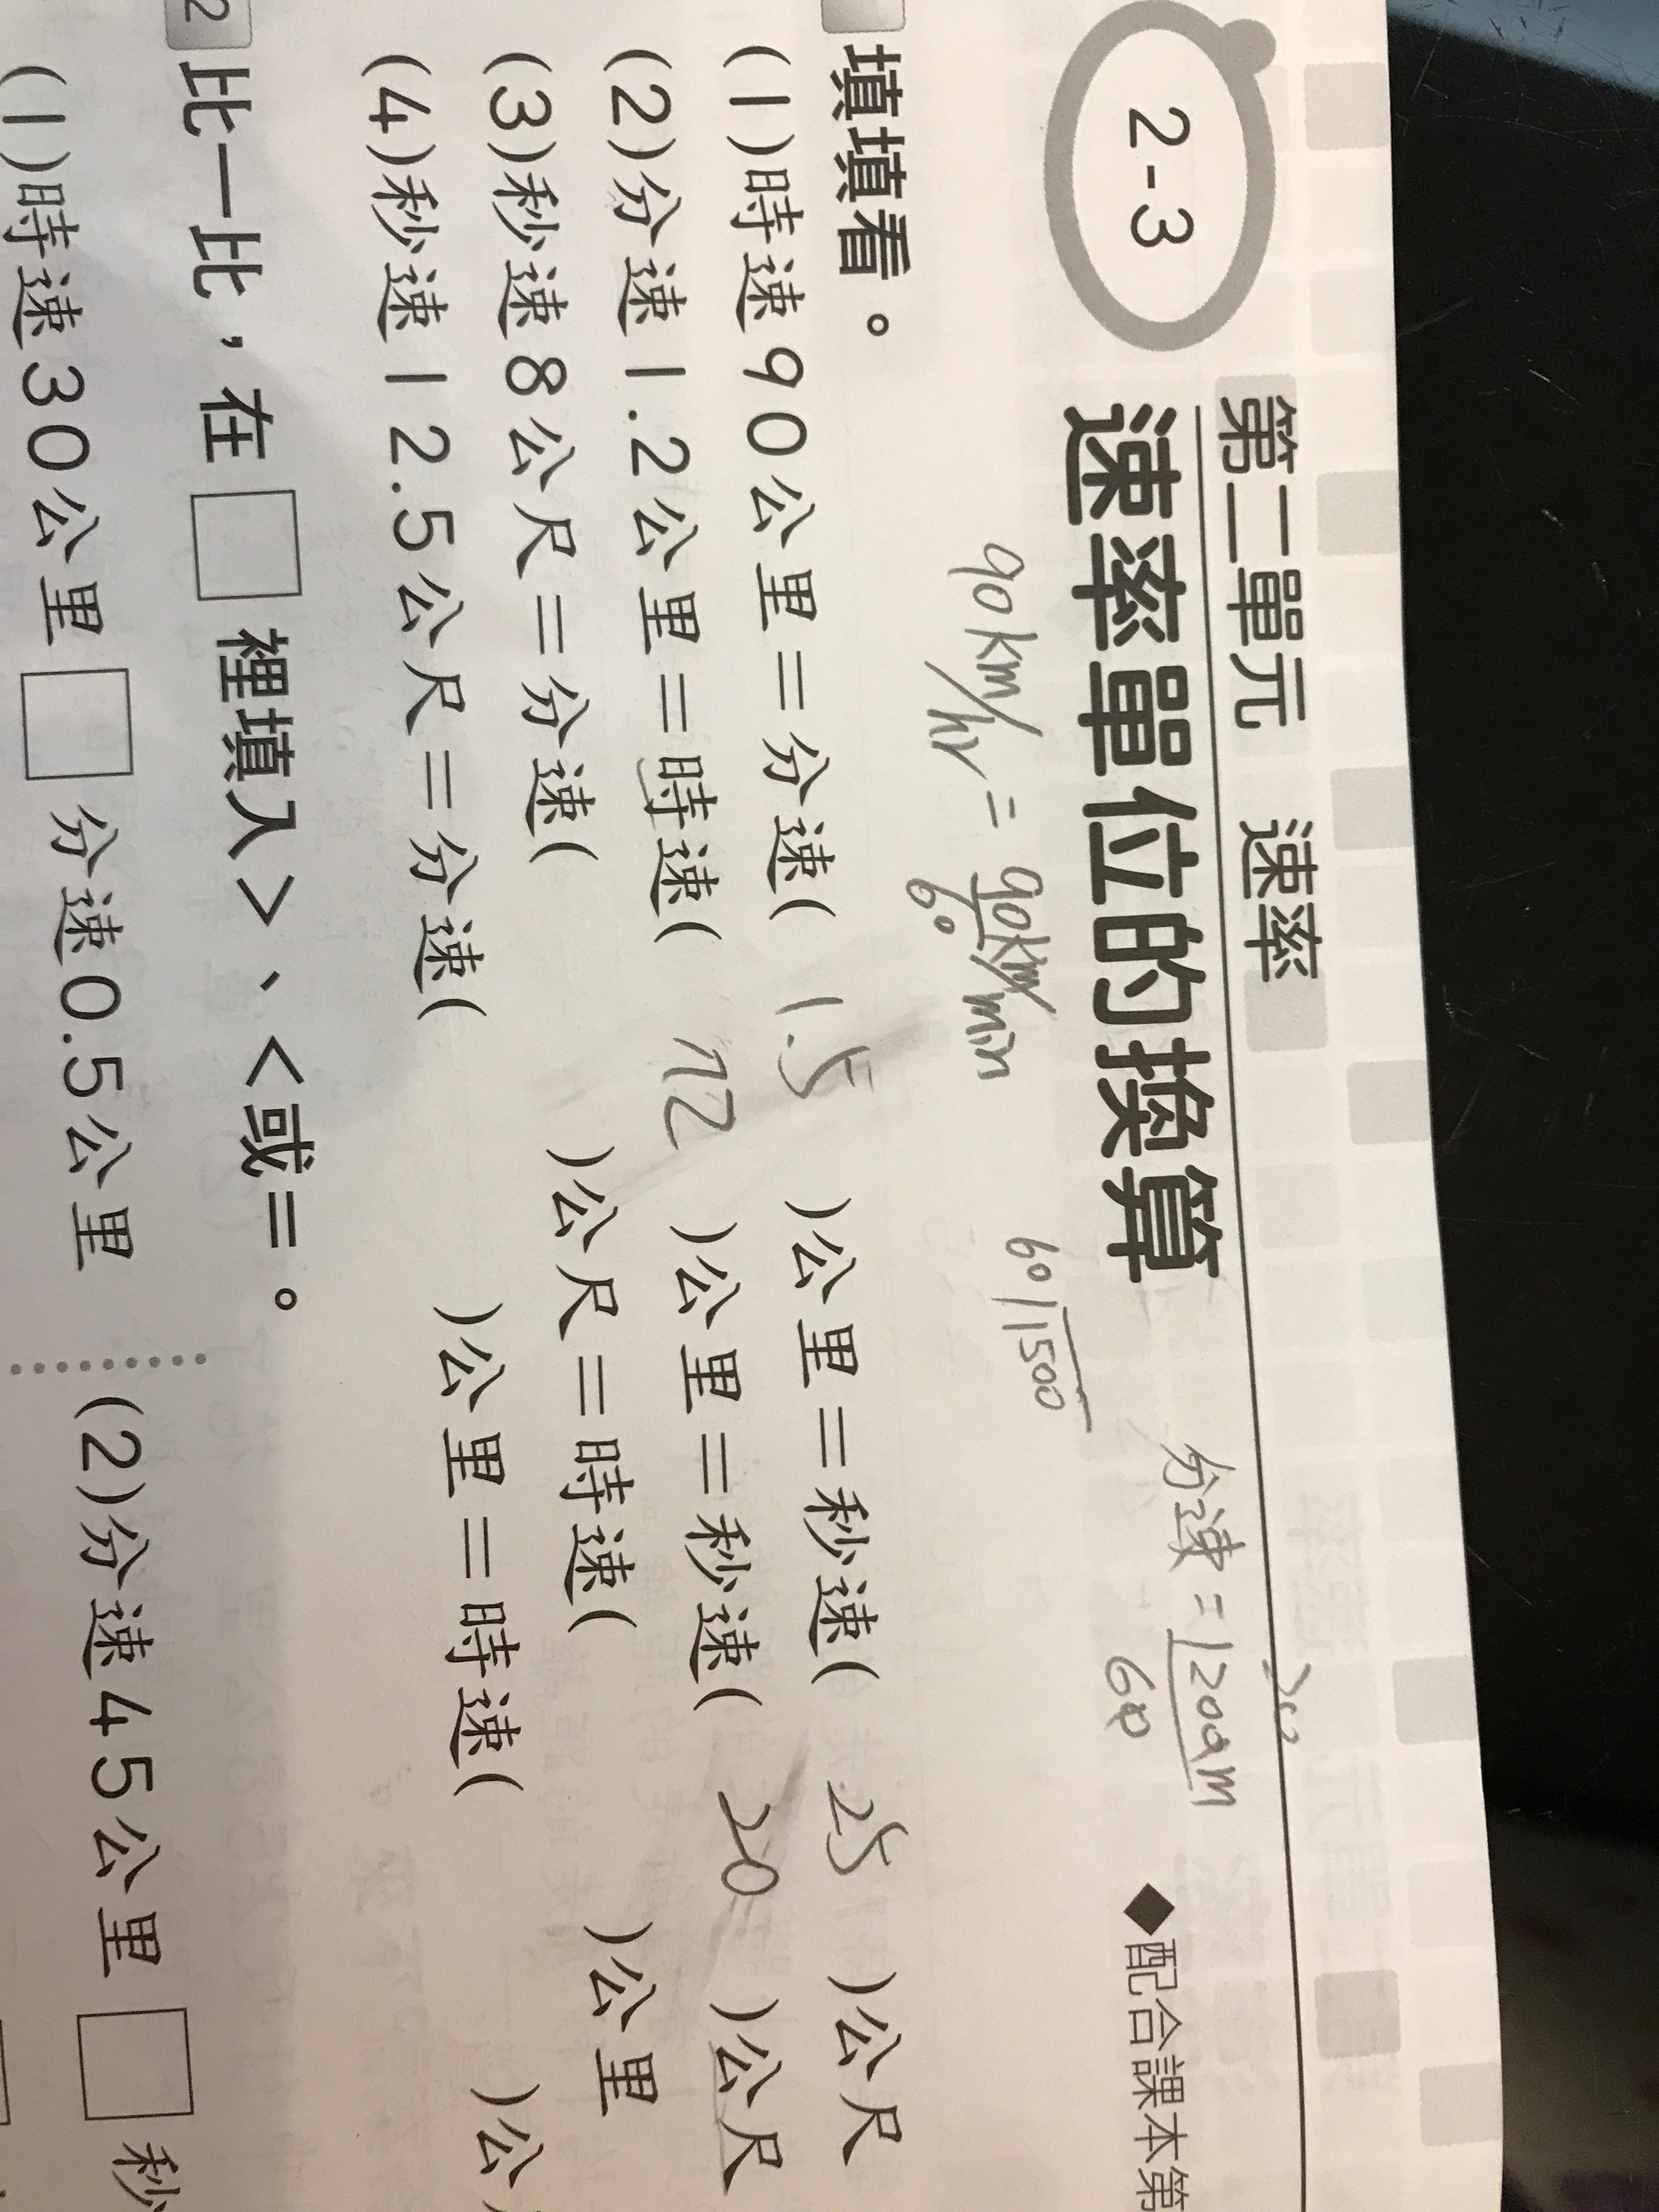 第二單元 速率
2-3 速率單位的換算 ◆配合課本第
分速=1200m
60
90km/hr = 90km/min
60
60 1500
填填看。
(1)時速90公里=分速( 1.5 )公里=秒速( 25 )公尺
(2)分速1.2公里=時速( 72 )公里=秒速( 20 )公尺
(3)秒速8公尺=分速( )公尺=時速( )公里
(4)秒速12.5公尺=分速( )公里=時速( )公
2 比一比,在□裡填入>、<或=。
(1)時速30公里□分速0.5公里
(2)分速45公里□秒